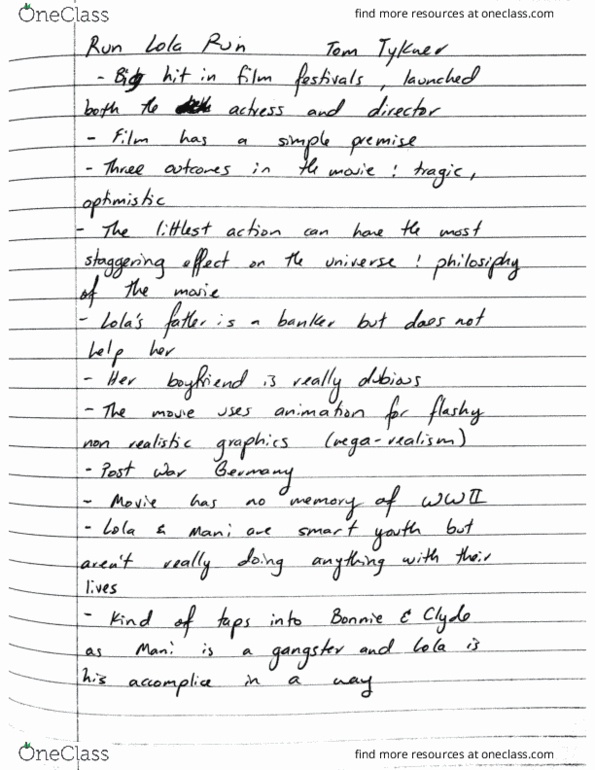 OneClass find more resources at oneclass.com
Run Lola Run Tom Tykner
- Big hit in film festivals, launched
both the actress and director
- Film has a simple premise
- Three outcomes in the movie : tragic,
optimistic
- The littlest action can have the most
staggering effect on the universe : philosiphy
of the movie
- Lola's father is a banker but does not
help her
- Her boyfriend is really dubious
- The movie uses animation for flashy
non realistic graphics (mega-realism)
- Post war Germany
- Movie has no memory of WWII
- Lola & Mani are smart youth but
aren't really doing anything with their
lives
- Kind of taps into Bonnie & Clyde
as Mani is a gangster and Lola is
his accomplice in a way
OneClass find more resources at oneclass.com